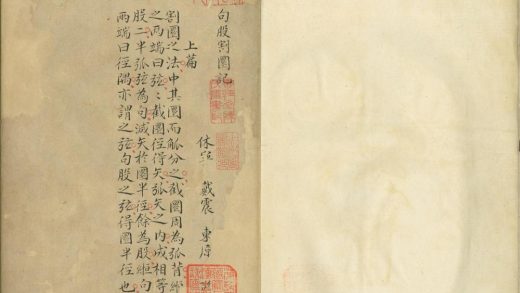 句股割圜記
休寧 戴震 東原
上篇
割圜之法中其圜而觚分之截圜周為弧背縆
之兩端曰弦〻截圜徑得矢弧矢之內成相等
股二半弧弦為句減矢於圜半徑餘為股縆句
兩端曰徑隅亦謂之弦句股之弦得圜半徑也